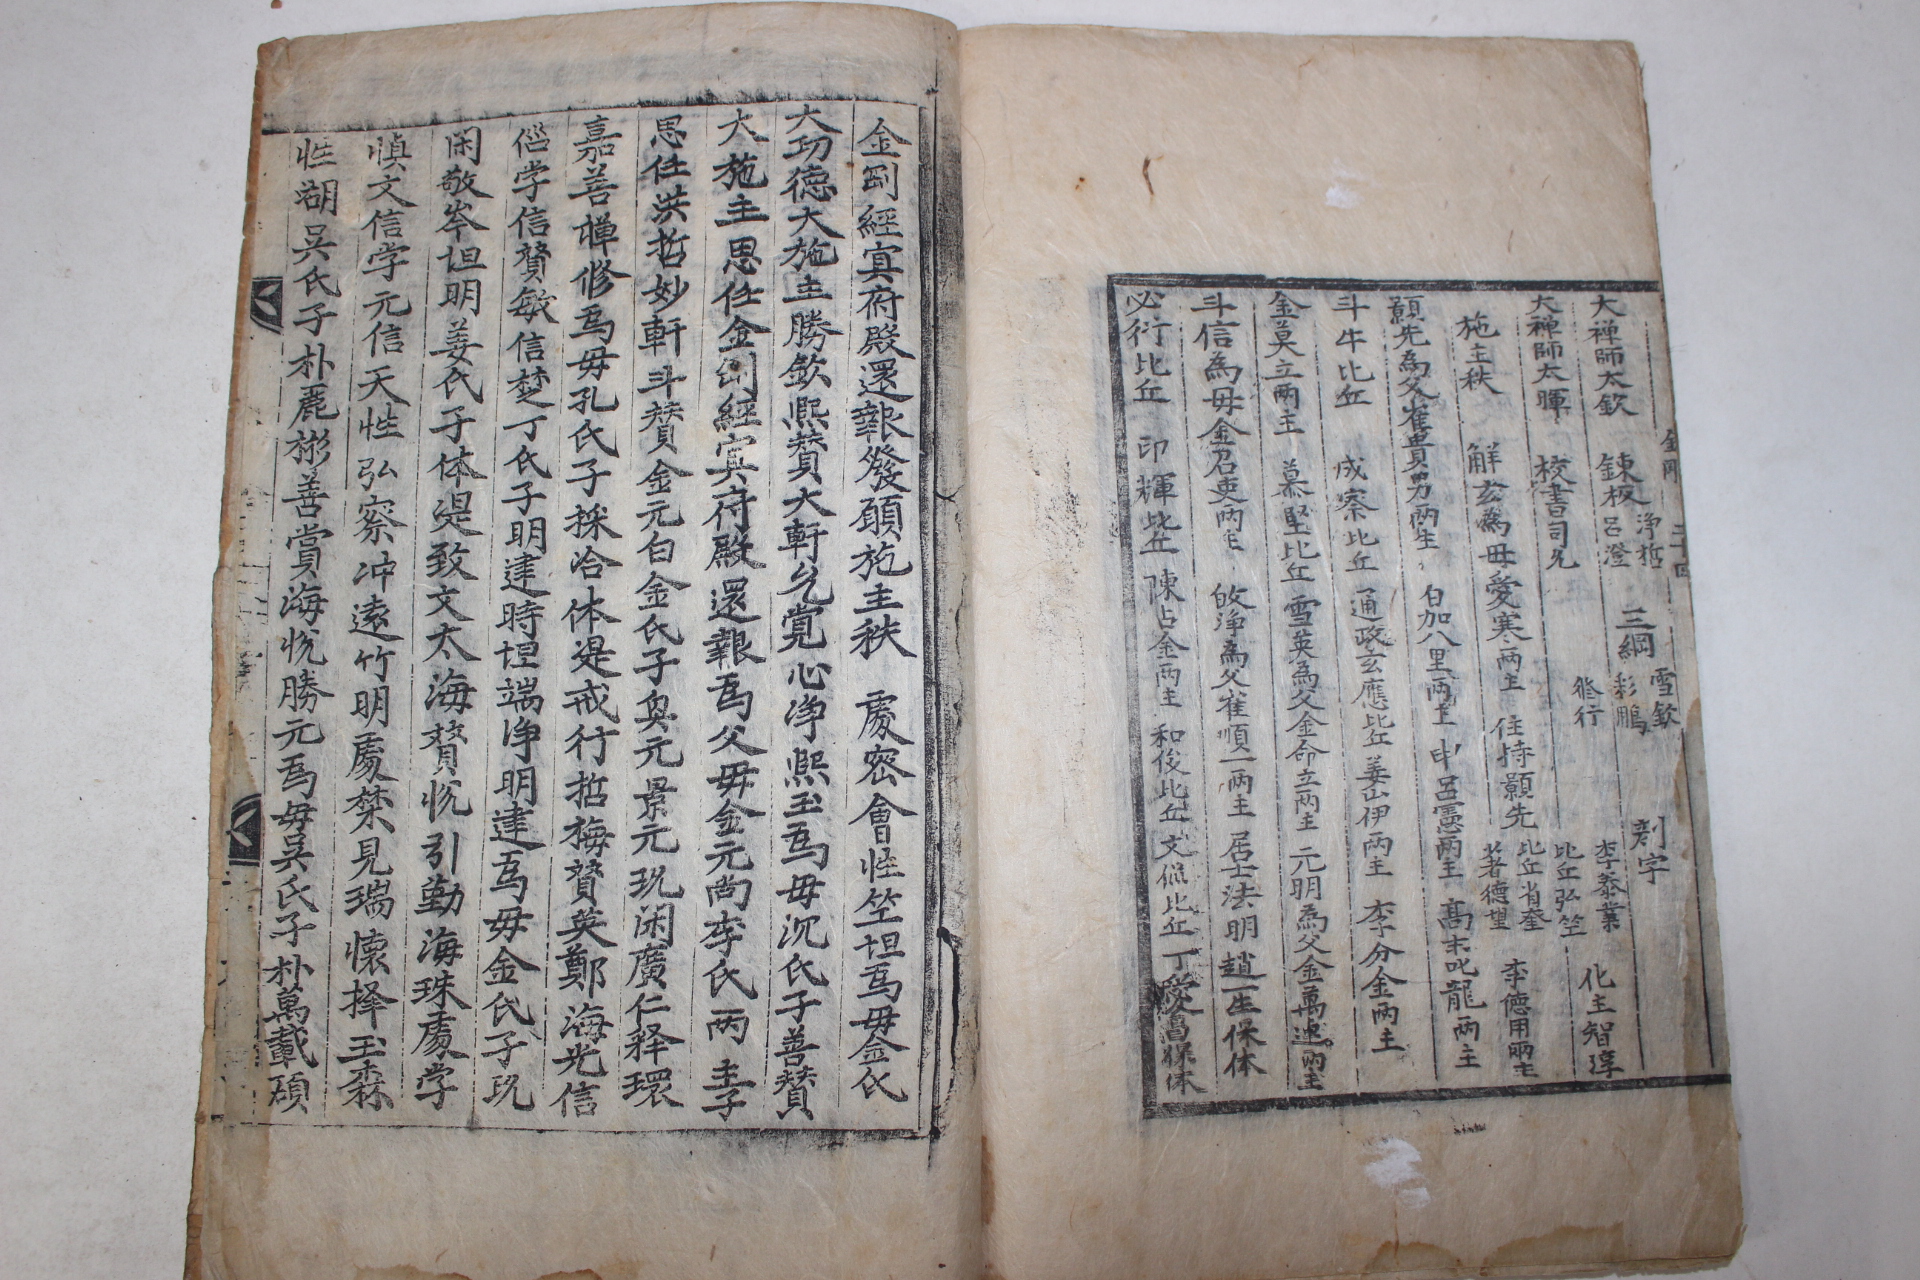 金剛 二十四
大禅師太欽 鍊板 浄哲 呂澄 三綱 雪欽 彩鵬 刻字 李泰業 比丘弘竺 化主智淳
大禅師太暉 校書司允 修行 比丘省奎
施主秩 解玄為母愛寒兩主 住持願先 著德望 李德用兩主
願先為父崔貴男兩主 白加八里兩主 申呂憲兩主 高末叱龍兩主
斗牛比丘 成察比丘 通政玄應比丘 姜山伊兩主 李分金兩主
金莫立兩主 慕堅比丘 雪英為父金命立兩主 元明為父金萬連兩主
斗信為母金召吏兩主 敀浄為父崔順一兩主 居士法明 趙一生保体
必行比丘 印輝比丘 陳占金兩主 和俊比丘 文侃比丘 丁愛昌保体
金剛經寘府殿還報發願施主秩 處密會性竺坦為毋金氏
大功德大施主勝欽熙賛大軒允寬心浄熙玉為毋沉氏子善賛
大施主思任金剛經寘府殿還報為父毋金元尚李氏兩主子
思任洪哲妙軒斗賛金元白金氏子奐元景元玩闲廣仁释環
嘉善禪修為毋孔氏子採冾体湜戒行哲梅贊英鄭海光信
偘学信贊敏信楚丁氏子明建時坦端浄明建為毋金氏子玩
闲敬岑坦明姜氏子体湜致文太海贊悅引勤海珠處学
愼文信学元信天性弘察冲遠竹明處禁見瑞懷择玉森
性湖吳氏子朴麗彬善賞海悅勝元為毋吳氏子朴萬載碩